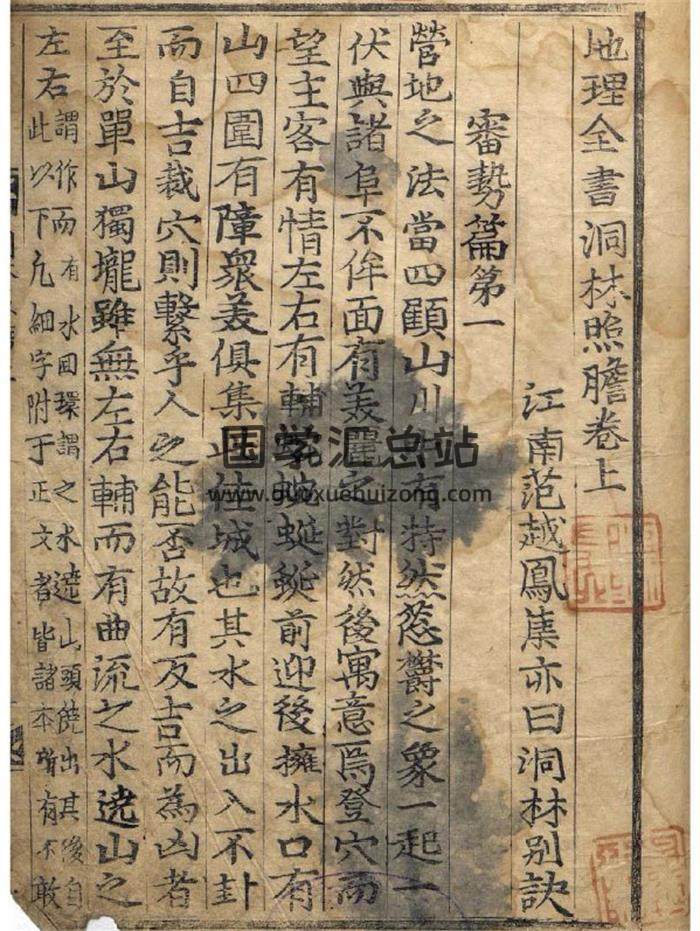 地理全書洞林照膽卷上
江南范越鳳集亦曰洞林別訣
審勢篇第一
營地之法當四顧山川有特然蔥欝之象一起一
伏與諸阜不侔面有羙麗之對然後寓意焉登穴而
望主客有情左右有輔蜿蜒前迎後擁水口有
山四圍有障衆羙俱集此佳城也其水之出入不卦
而自吉裁穴則繫乎人之能否故有反吉而為凶者
至於單山獨壠雖無左右輔而有曲流之水遶山之
左右
謂作而有水回環謂之水遶山頭饒出其後自
此以下凡細字附于正文者皆諸本所有不敢
国学汇总站
www.guoxuehuizong.com